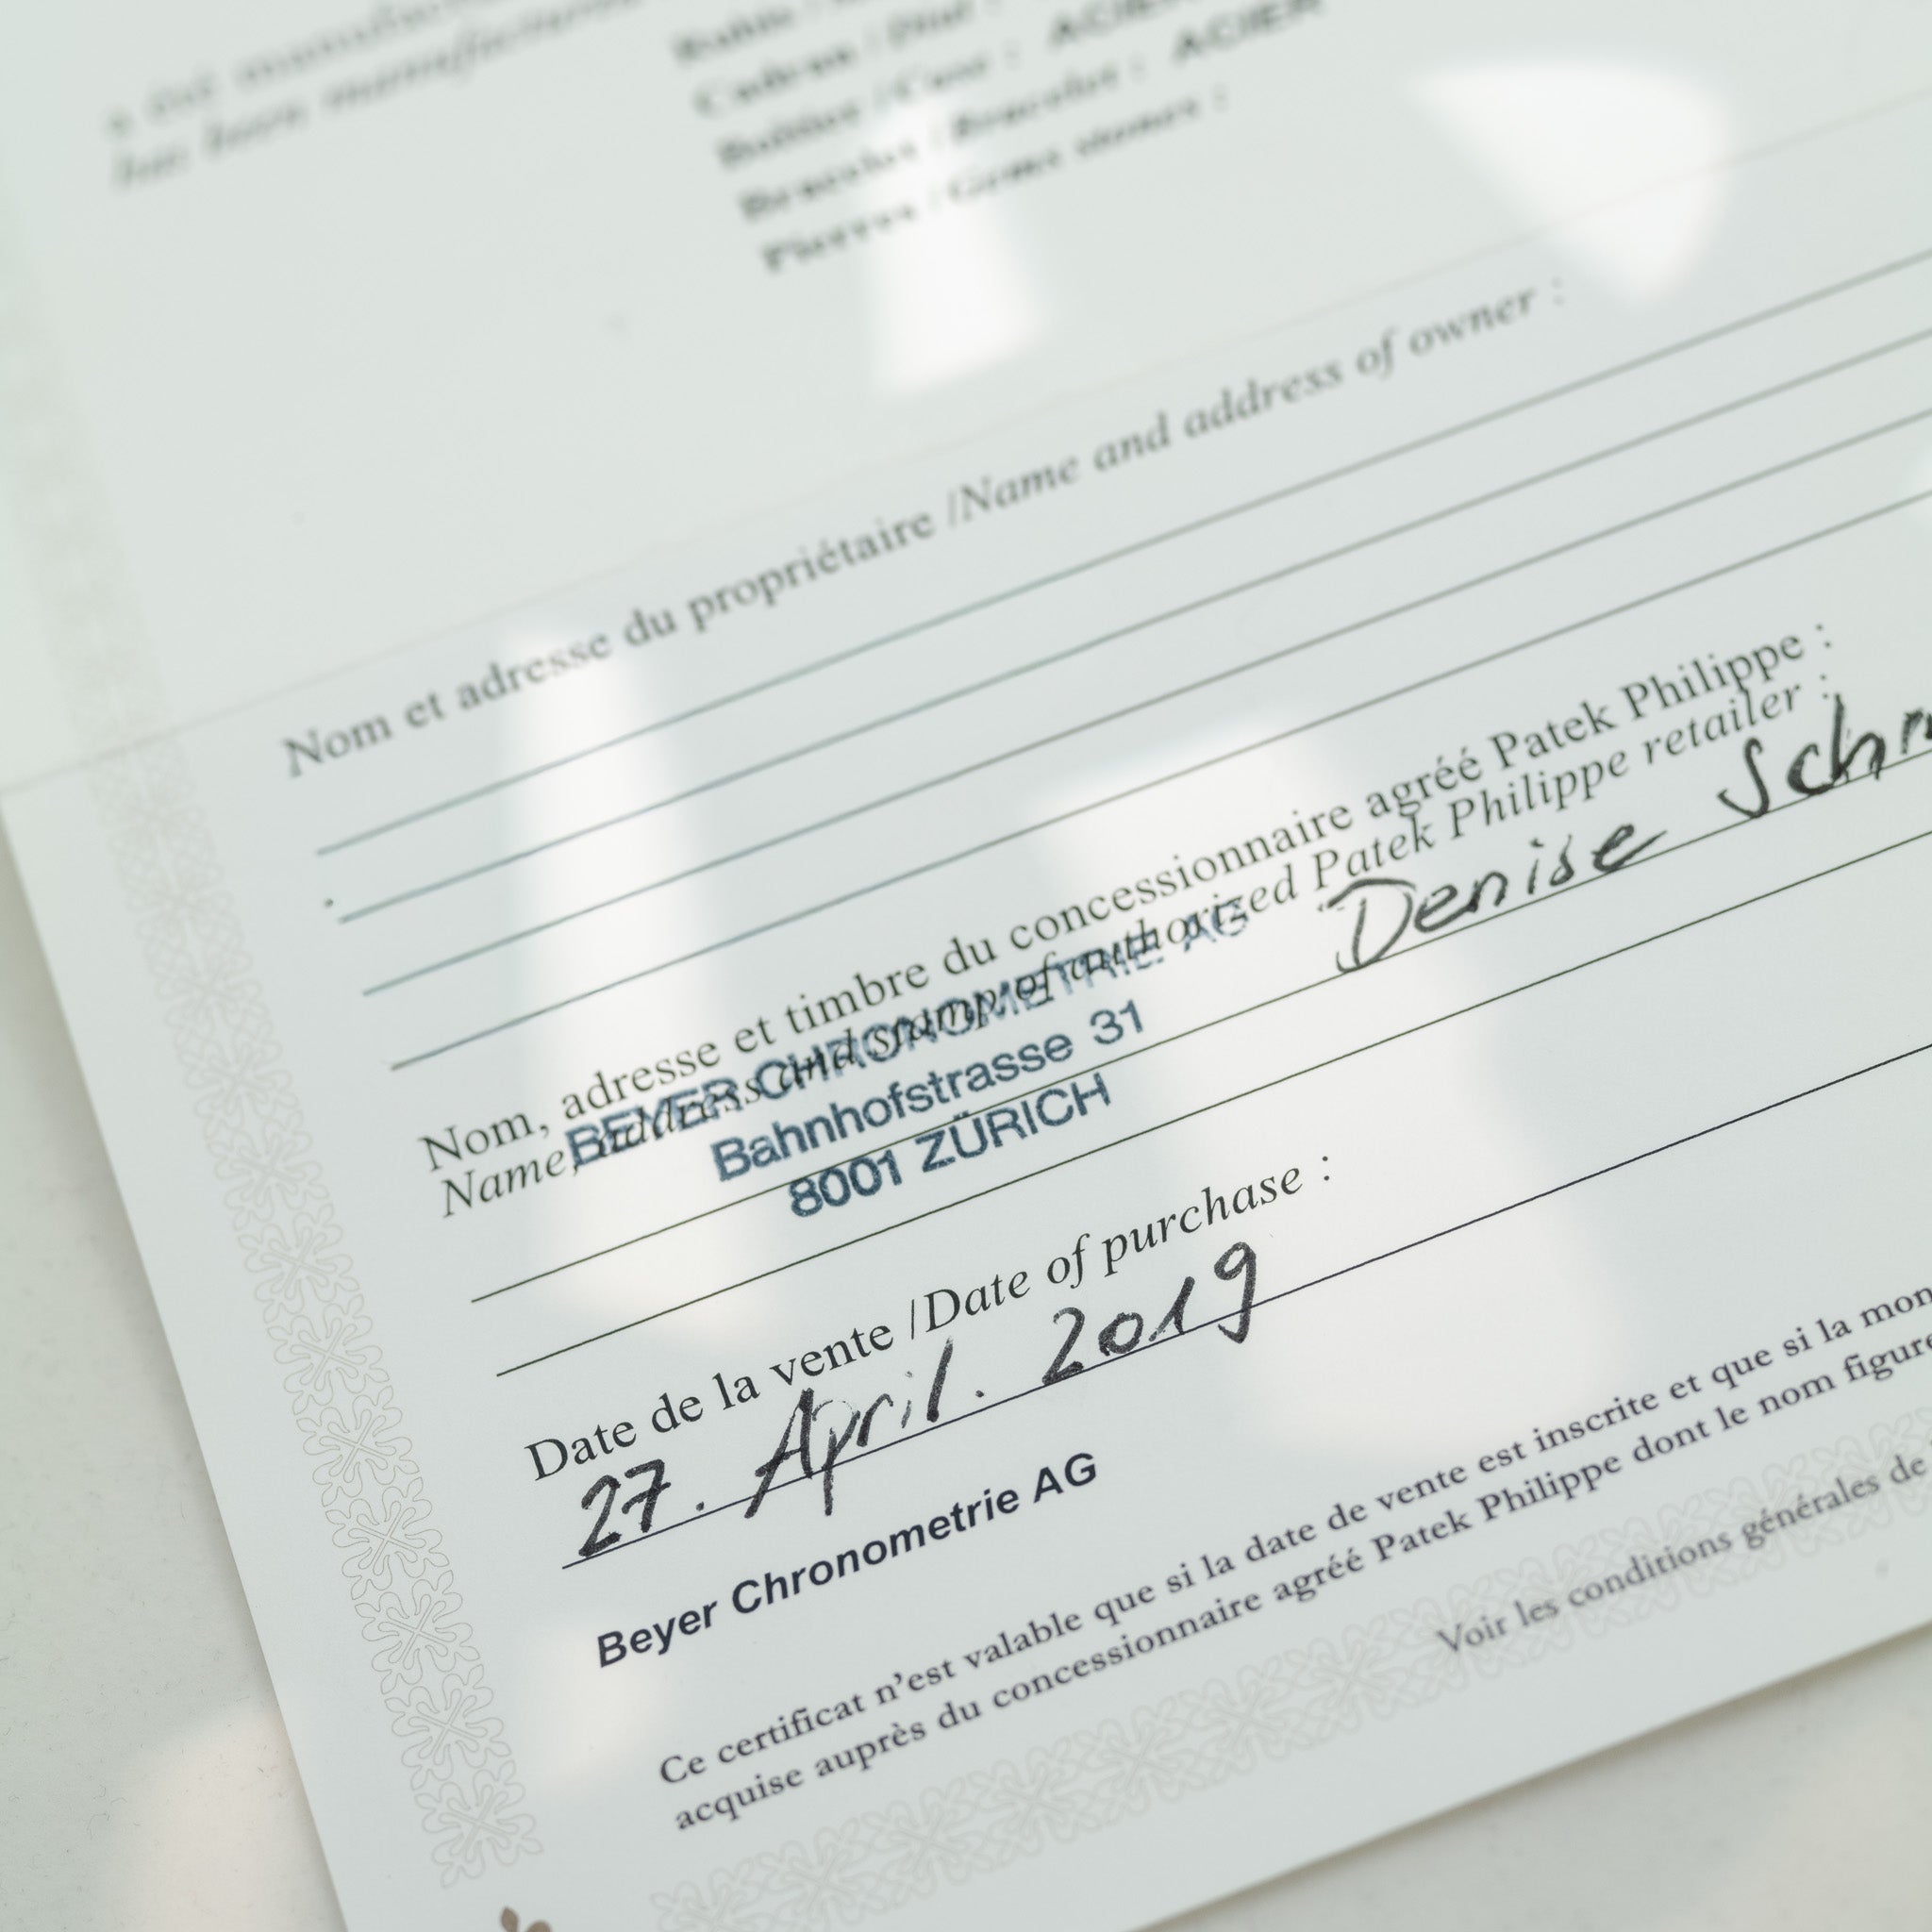 a été manufactur
has been manufactured
Cadran / Dial :
Boîtier / Case : ACIER
Bracelet / Bracelet : ACIER
Pierres / Gems stones :
Nom et adresse du propriétaire /Name and address of owner :
Nom, adresse et timbre du concessionnaire agréé Patek Philippe :
Name, address and stamp of authorized Patek Philippe retailer :
BEYER CHRONOMETRIE AG
Denise Sch
Bahnhofstrasse 31
8001 ZÜRICH
Date de la vente /Date of purchase :
27. April. 2019
Beyer Chronometrie AG
Ce certificat n'est valable que si la date de vente est inscrite et que si la mon
acquise auprès du concessionnaire agréé Patek Philippe dont le nom figure
Voir les conditions générales de